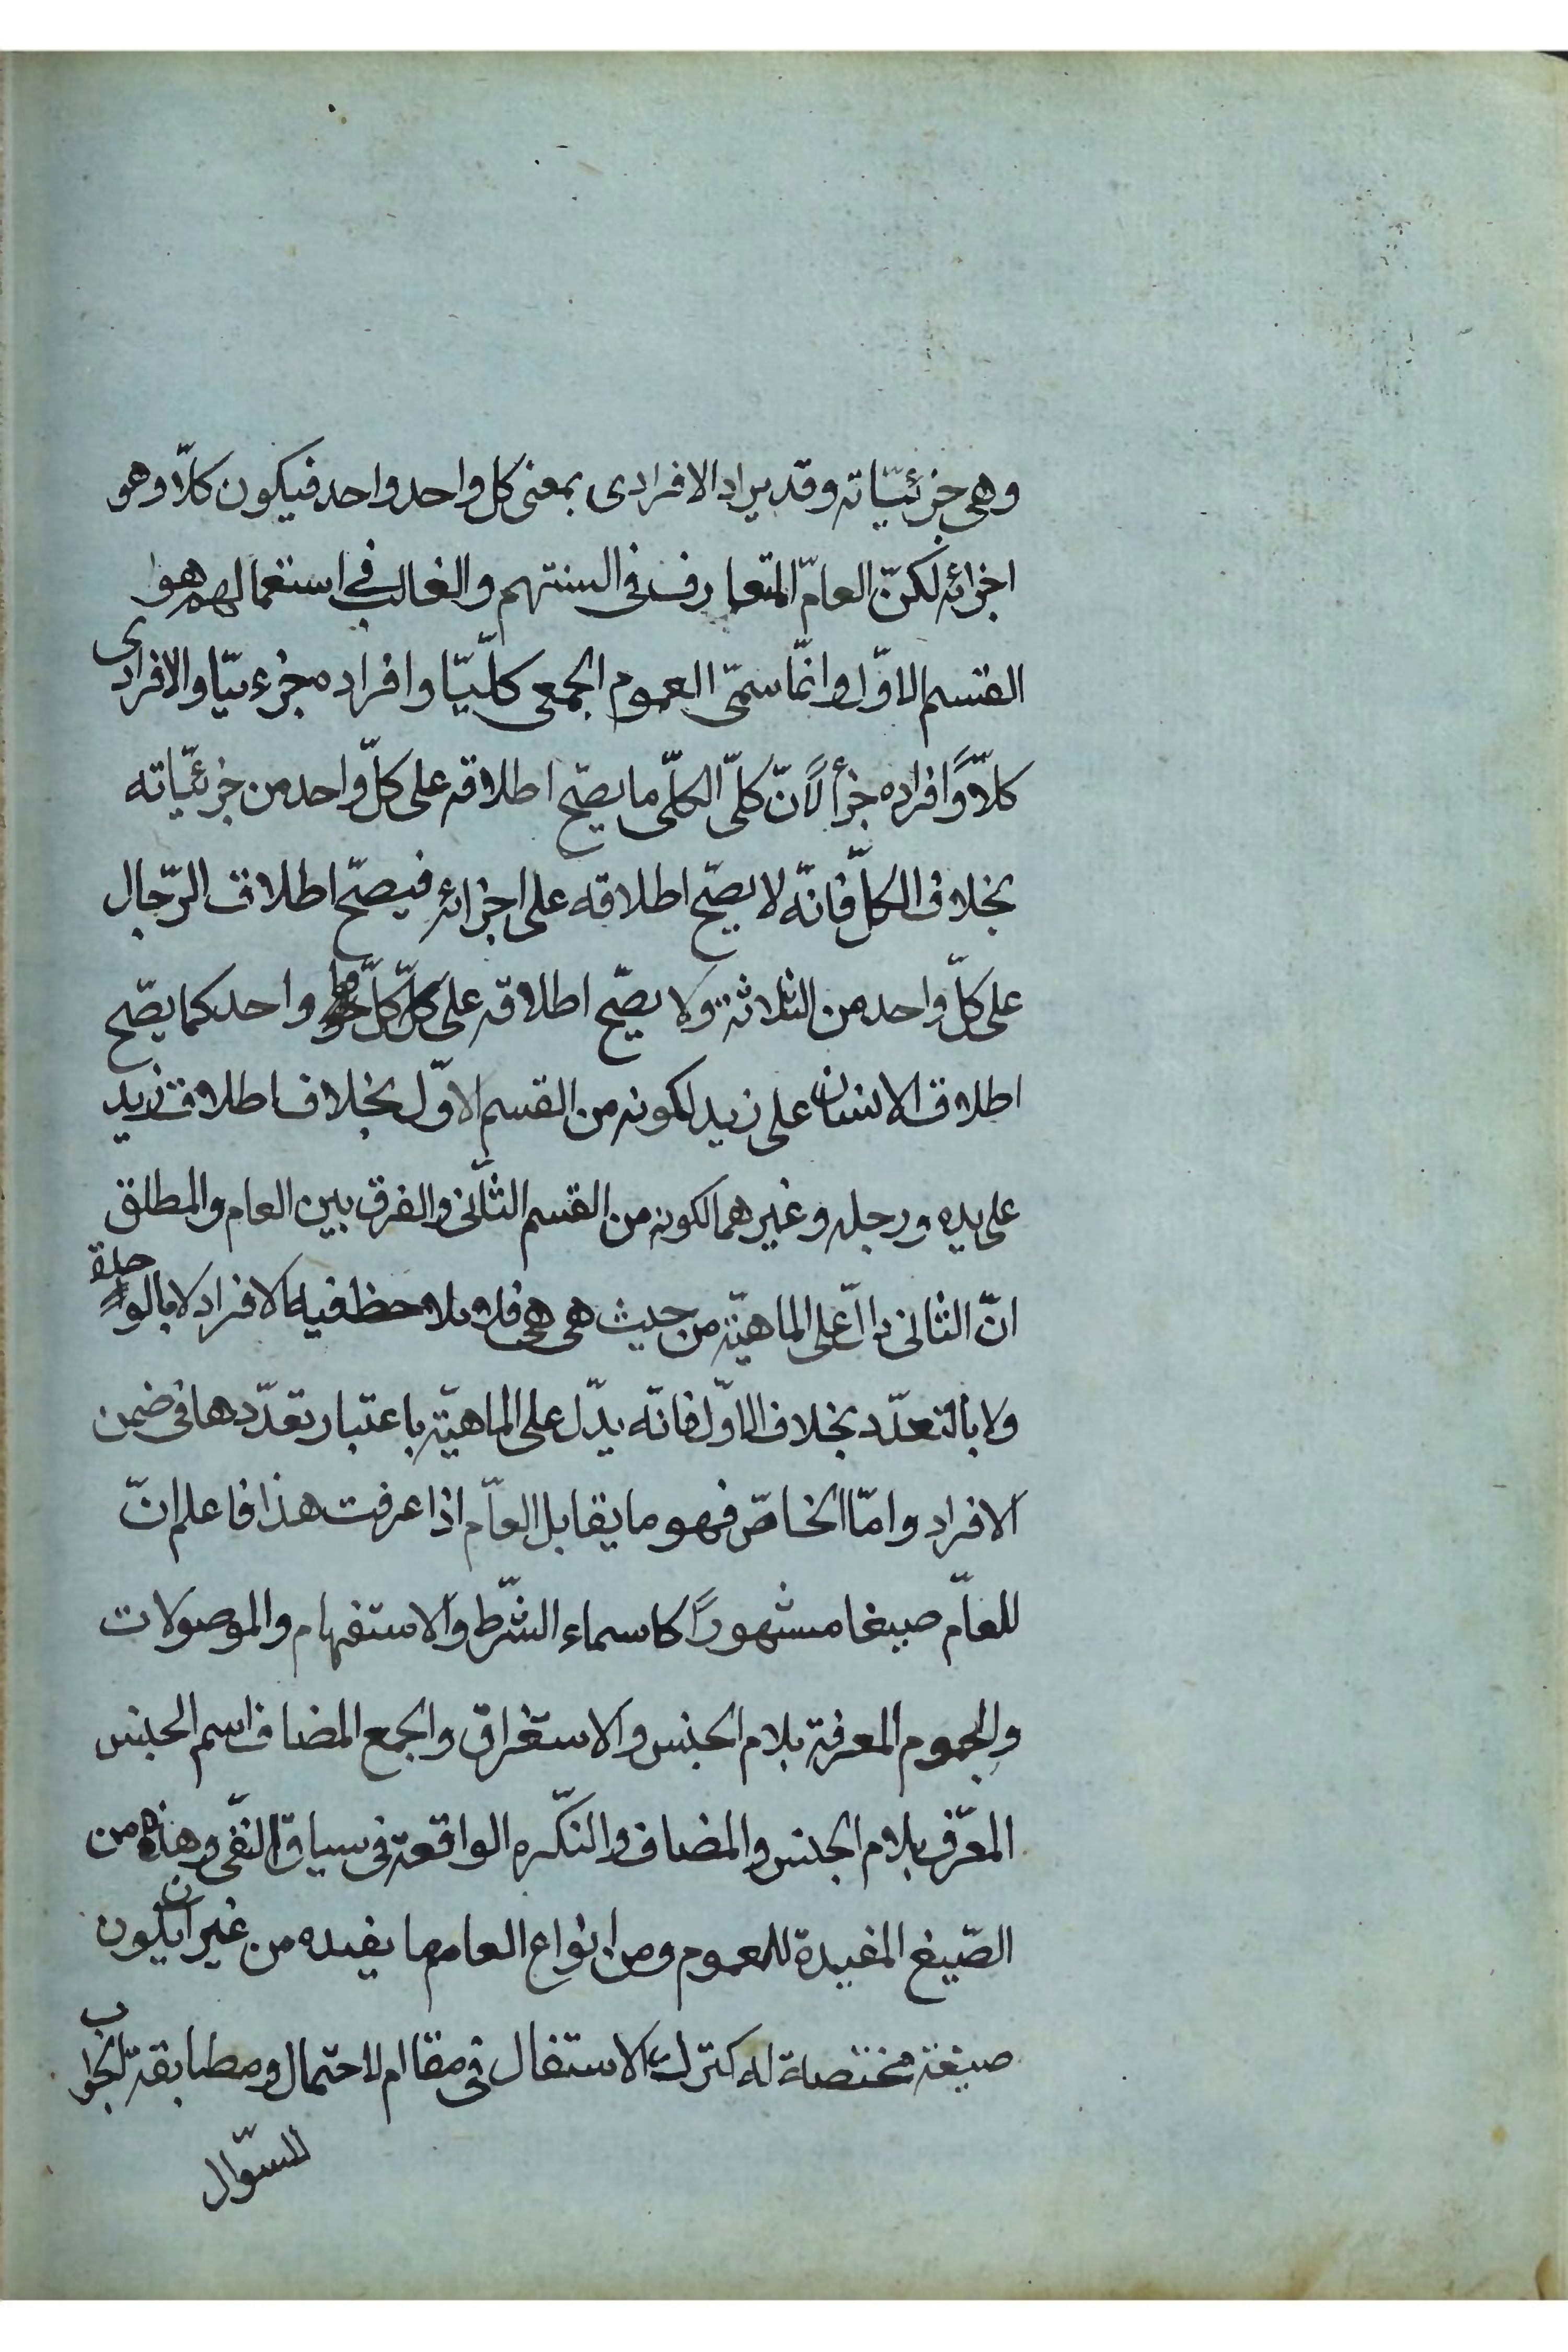 وهى جزئيّاته وقد يراد الافرادى بمعنى كل واحد واحد فيكون كلّا وهو
اجزائه لكنّ العامّ المتعارف فى السنتهم والغالب فى استعمالهم هو
القسم الاوّل وانّما سمّى العموم الجمعى كلّيّا وافراده جزءيّا والافرادى
كلّاً وافراده جزأ لانّ كلّ الكلّى ما يصحّ اطلاقه على كلّ واحد من جزئيّاته
بخلاف الكلّ فانّه لا يصحّ اطلاقه على اجزائه فيصحّ اطلاق الرّجال
على كلّ واحد من الثلاثة ولا يصحّ اطلاقه على كلّ كلّ واحد كما يصّح
اطلاق الانسان على زيد لكونه من القسم الاوّل بخلاف اطلاق زيد
على يده ورجله وغيرهما لكونه من القسم الثّانى والفرق بين العام والمطلق
انّ الثانى دالّ على الماهيّة من حيث هى هى فلا يلاحظ فيه الافراد لا بالواحدة
ولا بالتعدّد بخلاف الاوّل فانّه يدّل على الماهيّة باعتبار تعدّدها فى ضمن
الافراد وامّا الخاصّ فهو ما يقابل العاّم اذا عرفت هذا فاعلم انّ
للعاّم صيغا مشهوراً كاسماء الشّرط والاستفهام والموصولات
والجموم المعرفة بلام الجنس والاستغراق والجمع المضاف اسم الجنس
المعّرف بلام الجنس والمضاف والنكّره الواقعة فى سياق النّفى وهذه من
الصّيغ المفيدة للعموم ومن انواع العام ما يفيده من غير ان يكون
صيغة مختصة له كترك الاستفال فى مقام الاحتمال ومطابقة الجواب
للسّوال